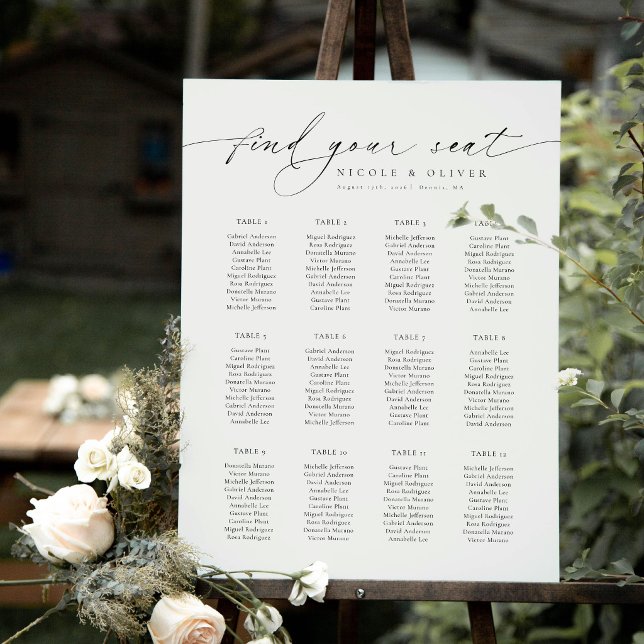 find your seat
NICOLE & OLIVER
August 17th, 2026 | Dennis, MA
TABLE 1
Gabriel Anderson
David Anderson
Annabelle Lee
Gustave Plant
Caroline Plant
Miguel Rodriguez
Rosa Rodriguez
Donatella Murano
Victor Murano
Michelle Jefferson
TABLE 2
Miguel Rodriguez
Rosa Rodriguez
Donatella Murano
Victor Murano
Michelle Jefferson
Gabriel Anderson
David Anderson
Annabelle Lee
Gustave Plant
Caroline Plant
TABLE 3
Michelle Jefferson
Gabriel Anderson
David Anderson
Annabelle Lee
Gustave Plant
Caroline Plant
Miguel Rodriguez
Rosa Rodriguez
Donatella Murano
Victor Murano
Gustave Plant
Caroline Plant
Miguel Rodriguez
Rosa Rodriguez
Donatella Murano
Victor Murano
Michelle Jefferson
Gabriel Anderson
David Anderson
Annabelle Lee
TABLE 5
Gustave Plant
Caroline Plant
Miguel Rodriguez
Rosa Rodriguez
Donatella Murano
Victor Murano
Michelle Jefferson
Gabriel Anderson
David Anderson
Annabelle Lee
TABLE 6
Gabriel Anderson
David Anderson
Annabelle Lee
Gustave Plant
Caroline Plant
Miguel Rodriguez
Rosa Rodriguez
Donatella Murano
Victor Murano
Michelle Jefferson
TABLE 7
Miguel Rodriguez
Rosa Rodriguez
Donatella Murano
Victor Murano
Michelle Jefferson
Gabriel Anderson
David Anderson
Annabelle Lee
Gustave Plant
Caroline Plant
TABLE 8
Annabelle Lee
Gustave Plant
Caroline Plant
Miguel Rodriguez
Rosa Rodriguez
Donatella Murano
Victor Murano
Michelle Jefferson
Gabriel Anderson
David Anderson
TABLE 9
Donatella Murano
Victor Murano
Michelle Jefferson
Gabriel Anderson
David Anderson
Annabelle Lee
Gustave Plant
Caroline Plant
Miguel Rodriguez
Rosa Rodriguez
TABLE 10
Michelle Jefferson
Gabriel Anderson
David Anderson
Annabelle Lee
Gustave Plant
Caroline Plant
Miguel Rodriguez
Rosa Rodriguez
Donatella Murano
Victor Murano
TABLE 11
Gustave Plant
Caroline Plant
Miguel Rodriguez
Rosa Rodriguez
Donatella Murano
Victor Murano
Michelle Jefferson
Gabriel Anderson
David Anderson
Annabelle Lee
TABLE 12
Michelle Jefferson
Gabriel Anderson
David Anderson
Annabelle Lee
Gustave Plant
Caroline Plant
Miguel Rodriguez
Rosa Rodriguez
Donatella Murano
Victor Murano